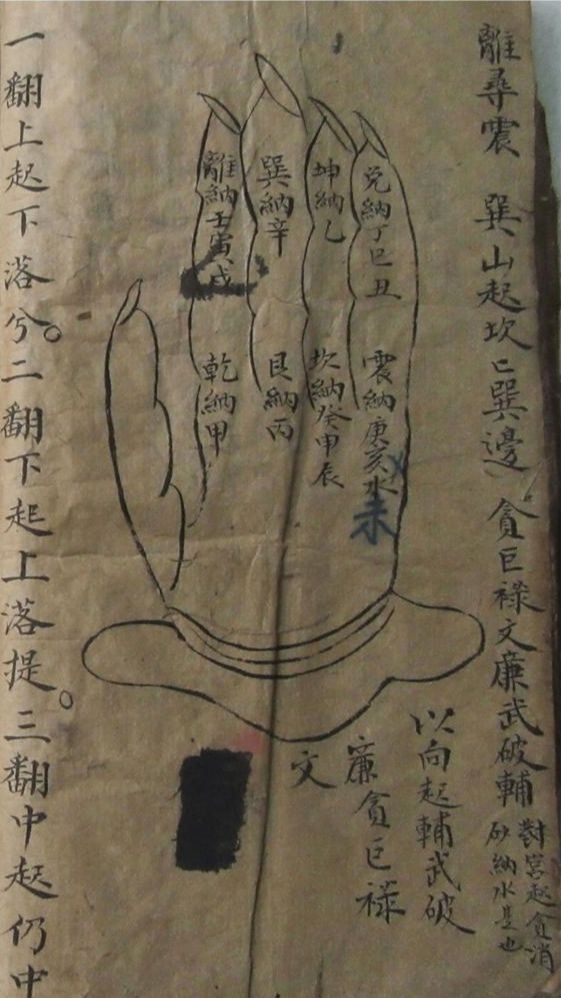 離尋震 巽山起坎亡巽邊 貪巨祿文廉武破輔
對宮起貪消
砂納水是也
兌納丁巳丑
震納庚亥水
未
坤納乙
坎納癸申辰
巽納辛
艮納丙
離納壬寅戌
乾納甲
以向起輔武破
廉貪巨祿
文
一翻上起下落兮。二翻下起上落提。三翻中起仍中